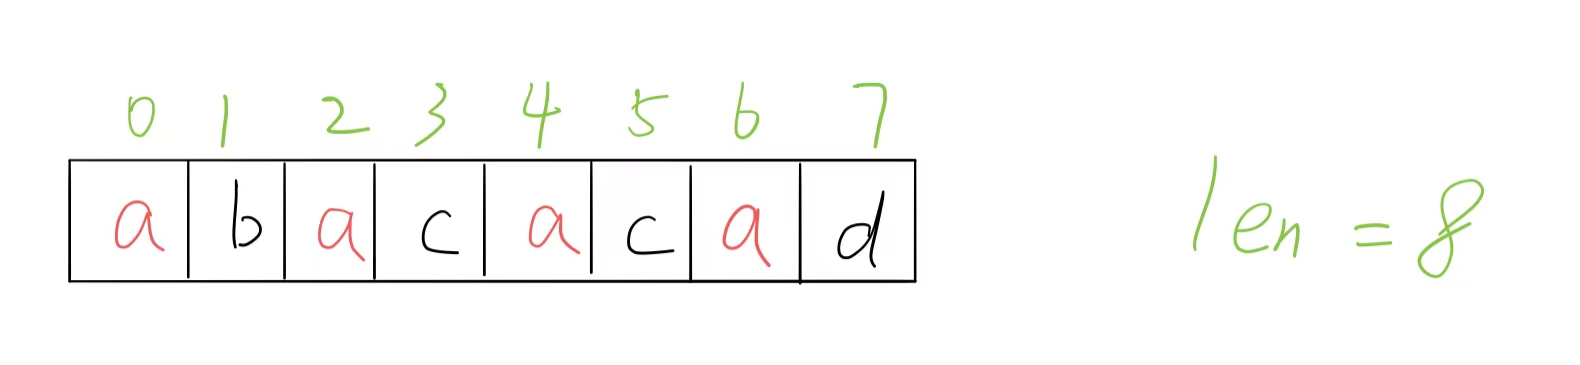 0 1 2 3 4 5 6 7
a b a c a c a d
len = 8